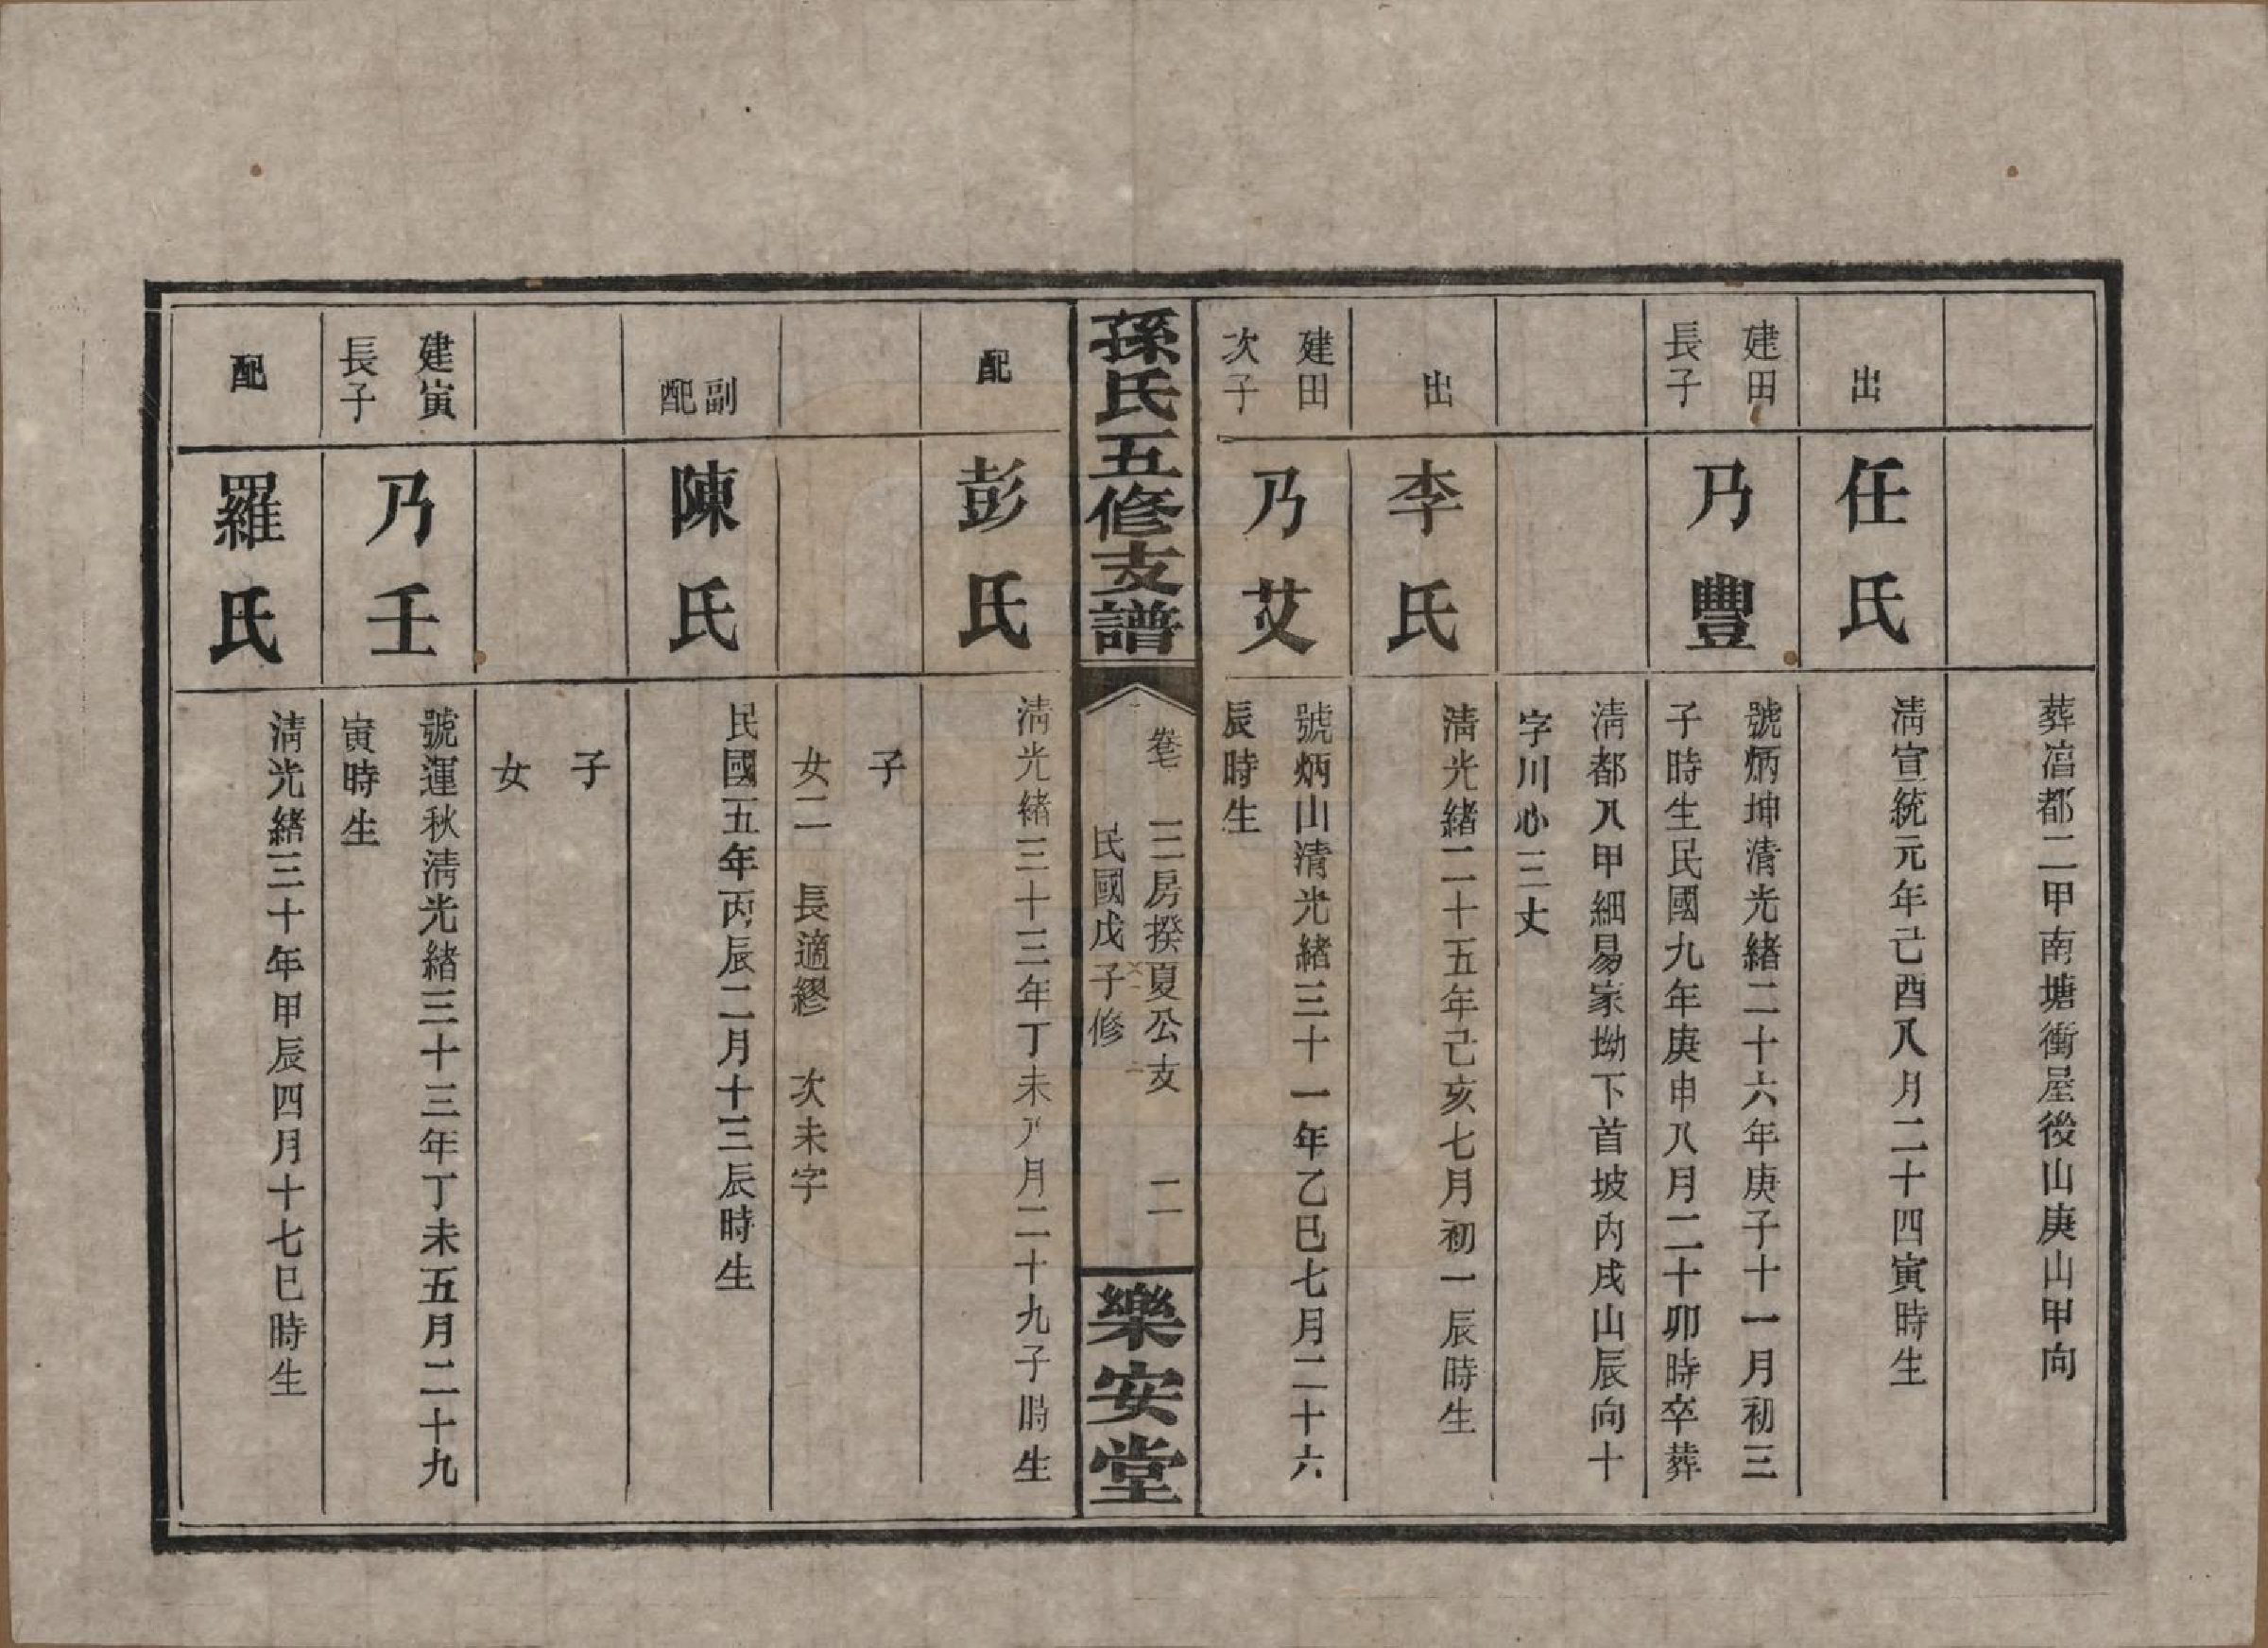 葬淯都二甲南塘衝屋後山庚山甲向
出
任氏
淸宣統元年己酉八月二十四寅時生
建田
長子
乃豐
號炳坤淸光緒二十六年庚子十一月初三
子時生民國九年庚申八月二十卯時卒葬
淸都八甲細易家坳下首坡內戌山辰向十
字川心三丈
出
李氏
淸光緒二十五年己亥七月初一辰時生
建田
次子
乃艾
號炳山淸光緒三十一年乙巳七月二十六
辰時生
孫氏五修支譜
卷七 三房揆夏公支 二
民國戊子修
樂安堂
配
彭氏
淸光緒三十三年丁未八月二十九子時生
子
女二 長適繆 次未字
副
配
陳氏
民國五年丙辰二月十三辰時生
子
女
建寅
長子
乃壬
號運秋淸光緒三十三年丁未五月二十九
寅時生
配
羅氏
淸光緒三十年甲辰四月十七巳時生